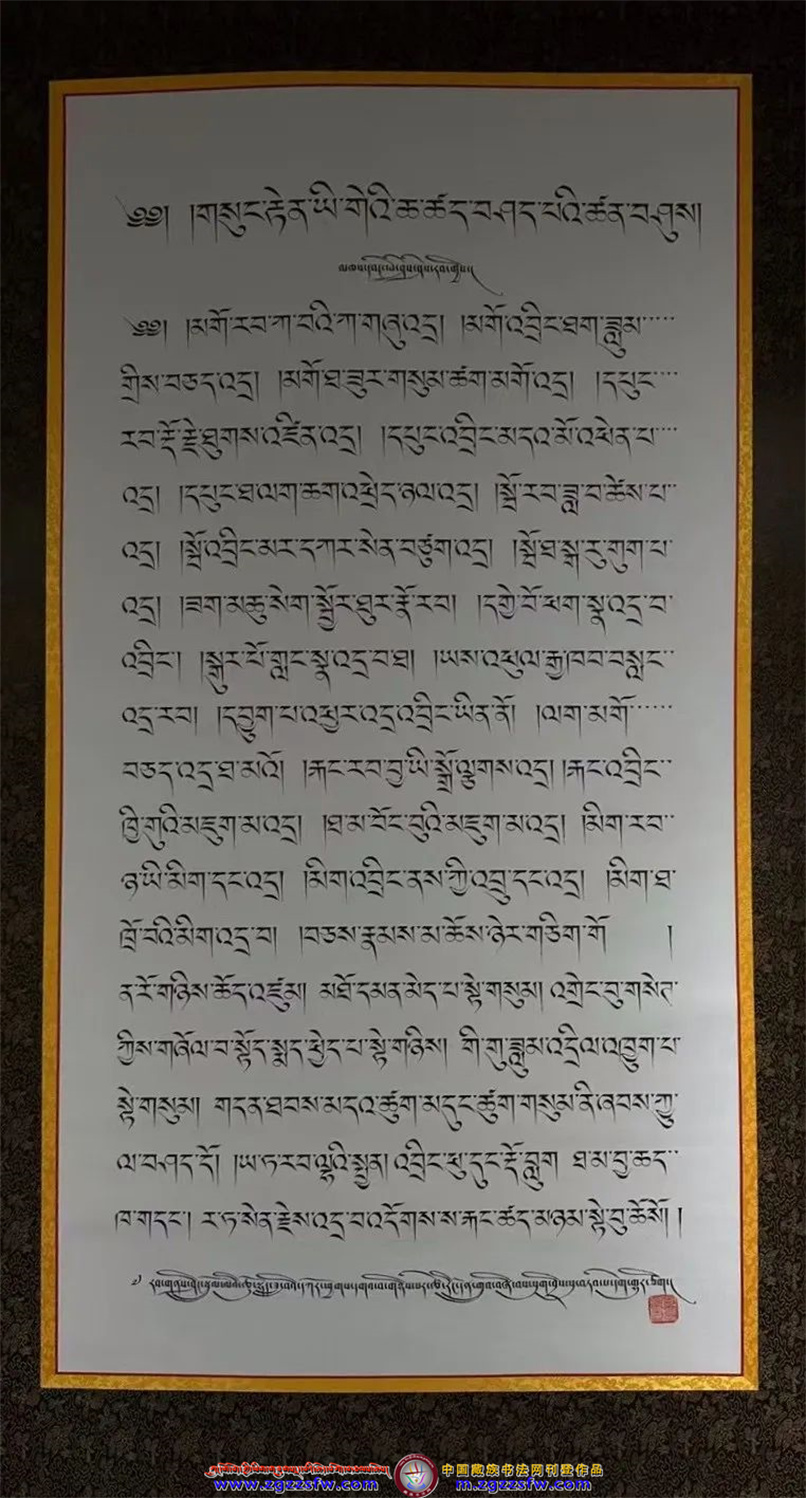 ༄༅། །གསུང་རྟེན་ཡི་གེའི་ཆ་ཚད་བཤད་པའི་ཚན་བཤུས།
༄༅། །མགོ་རབ་ཀ་བའི་ཀ་གཞུ་འདྲ། །མགོ་འབྲིང་ཐག་ཟླུམ་
གྲིས་བཅད་འདྲ། །མགོ་ཐ་ཟུར་གསུམ་ཚག་མགོ་འདྲ། །དཔུང་
རབ་རྡོ་རྗེ་ཐུགས་འཛིན་འདྲ། །དཔུང་འབྲིང་མདའ་མོ་འཕེན་པ་
འདྲ། །དཔུང་ཐ་ལག་ཆག་འཕྲེད་ཉལ་འདྲ། །སྤྲོ་རབ་ཟླ་བ་ཚེས་པ་
འདྲ། །སྤྲོ་འབྲིང་མར་དཀར་སེན་བཙུག་འདྲ། །སྤྲོ་ཐ་སྒྲ་རུ་གུག་པ་
འདྲ། །ཟག་མཆུ་སེག་སྦྱོར་ཐུར་རྣོ་རབ། །དགྱེ་བོ་ཕག་སྣ་འདྲ་བ་
འབྲིང་། །སྒུར་པོ་གླང་སྣ་འདྲ་བ་ཐ། །ཡས་འཕུལ་རྒྱ་ཁབ་བསླང་
འདྲ་རབ། །དབྱུག་པ་འཕྱར་འདྲ་འབྲིང་ཡིན་ནོ། །ལག་མགོ་
བཅད་འདྲ་ཐ་མའོ། །རྐང་རབ་བྱ་ཡི་སྒྲོ་ལྕུགས་འདྲ། །རྐང་འབྲིང་
ཁྱི་གུའི་མཇུག་མ་འདྲ། །ཐ་མ་བོང་བུའི་མཇུག་མ་འདྲ། །མིག་རབ་
ཉ་ཡི་མིག་དང་འདྲ། །མིག་འབྲིང་ནས་ཀྱི་འབྲུ་དང་འདྲ། །མིག་ཐ་
ཁྲོ་བའི་མིག་འདྲ་བ། །བཅས་རྣམས་མ་ཆོས་ཉེར་གཅིག་གོ །
ན་རོ་གཉིས་ཆོད་འཛུམ། མཐོ་དམན་མེད་པ་སྟེ་གསུམ། འགྲེང་བུ་གསེཊ་
ཀྱིས་གཞོལ་བ་སྟོད་སྨད་ཕྱེད་པ་སྟེ་གཉིས། གི་གུ་ཟླུམ་འདྲིལ་འཁྱུག་པ་
སྟེ་གསུམ། གདན་ཐབས་མདའ་ཚུག་མདུང་ཚུག་གསུམ་ནི་ཞབས་ཀྱུ་
ལ་བཤད་དོ། །ཡ་ཏ་རབ་ལྷའི་སྤྱན། འབྲིང་ཕུ་དུང་རྡོ་བླུག ཐ་མ་བྱ་ཆད་
ཁ་གདང་། ར་ཏ་སེན་རྗེས་འདྲ་བ་འདོགས་ས་རྐང་ཚད་མཉམ་སྟེ་བུ་ཆོསོ། །
中国藏族书法网刊登作品
www.zgzzsfw.com m.zgzzsfw.com